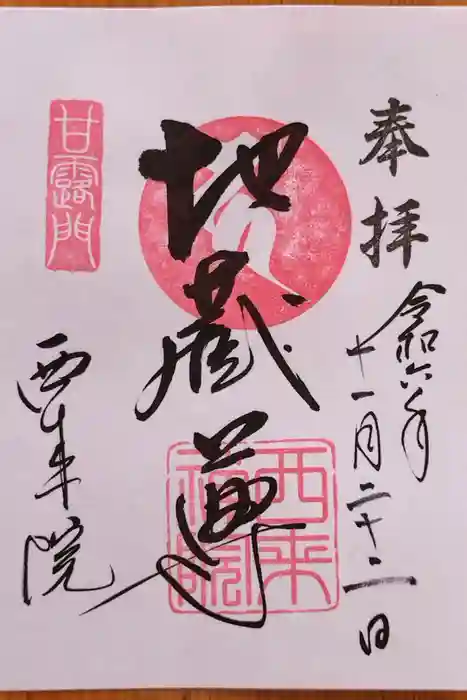 奉拝
令和六年
十一月二十二日
地蔵尊
甘露門
西来院
西来
禅院